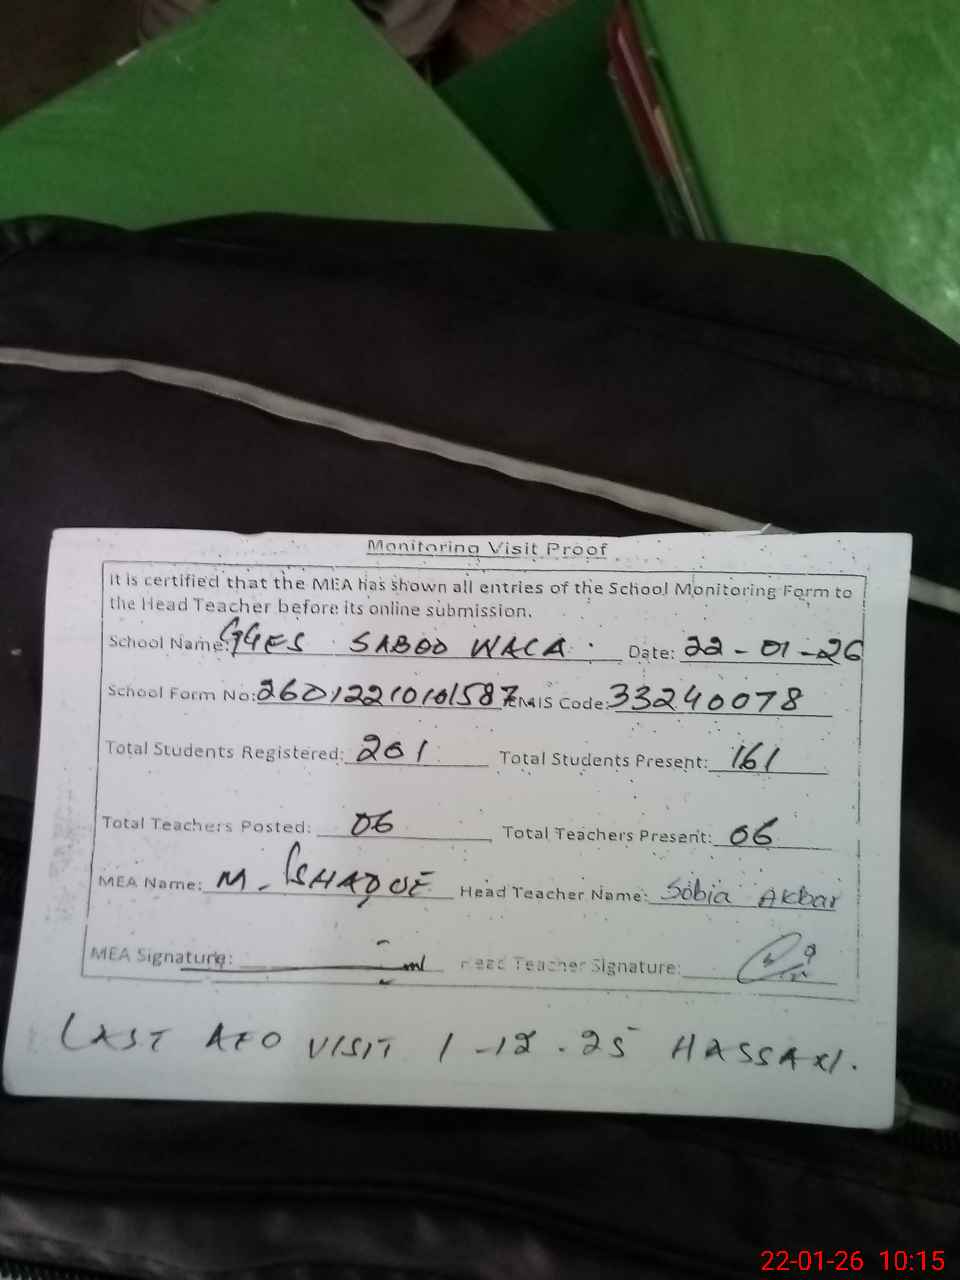 Monitoring Visit Proof
It is certified that the MEA has shown all entries of the School Monitoring Form to
the Head Teacher before its online submission.
School Name: GGES SABOO WALA. Date: 22-01-26
School Form No: 26012210101587 EMIS Code: 33240078
Total Students Registered: 201 Total Students Present: 161
Total Teachers Posted: 06 Total Teachers Present: 06
MEA Name: M. ISHAQUE Head Teacher Name: Sobia Akbar
MEA Signature: Head Teacher Signature:
LAST AEO VISIT 1-12.25 HASSAN.
22-01-26 10:15